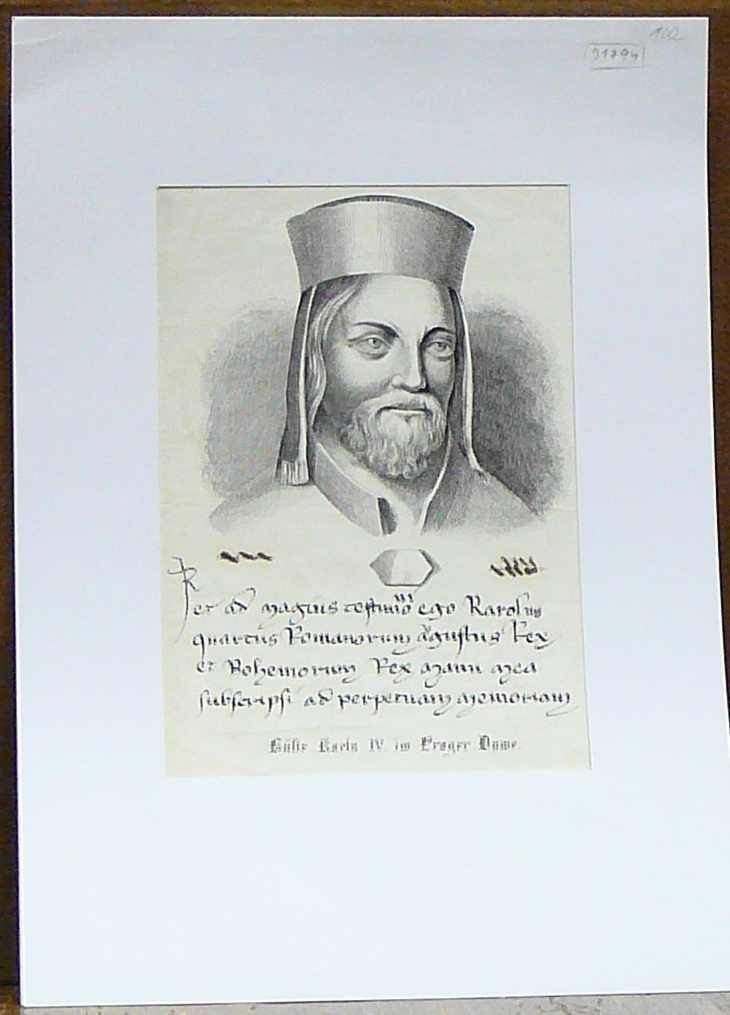 102
31794
et ad maguis testimo ego Karolus
quartus Romanorum Augustus Rex
et Bohemorum Rex manu mea
subscripsi ad perpetuam memoriam
Büste Karls IV. im Prager Dome.